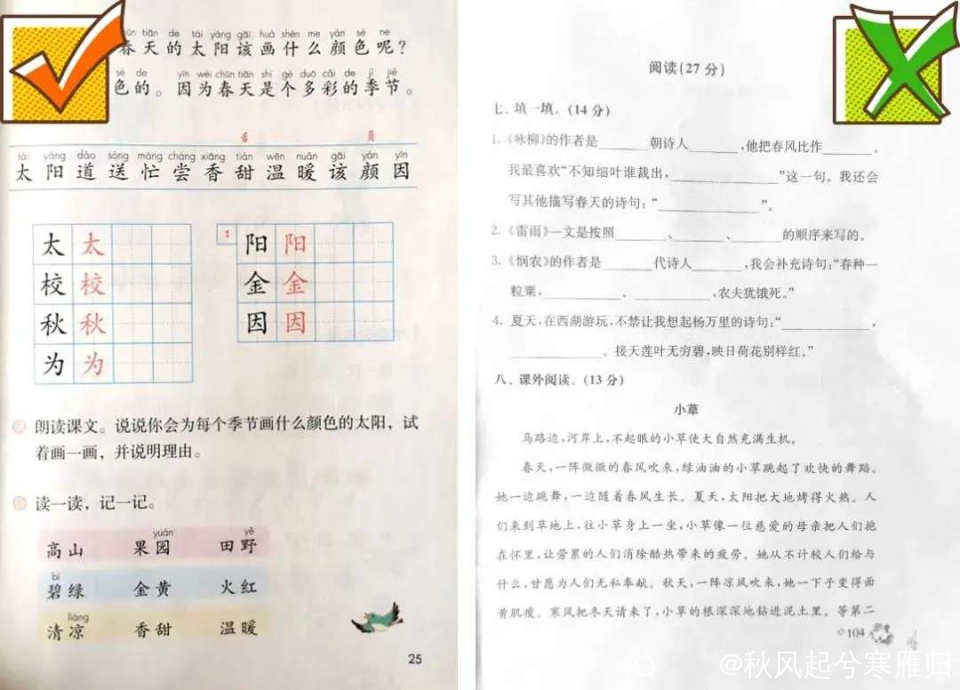 tiān de tài yáng gāi huà shén me yán sè ne
春天的太阳该画什么颜色呢？
sè de yīn wèi chūn tiān shì gè duō cǎi de jì jié
色的。因为春天是个多彩的季节。
tài yáng dào sòng máng cháng xiāng tián wēn nuǎn gāi yán yīn
太阳道送忙尝香甜温暖该颜因
太 太 阳 阳
校 校 金 金
秋 秋 因 因
为 为
朗读课文。说说你会为每个季节画什么颜色的太阳，试
着画一画，并说明理由。
读一读，记一记。
yuán yě
高山 果园 田野
bì
碧绿 金黄 火红
liáng
清凉 香甜 温暖
25
阅读(27分)
七、填一填。(14分)
1.《咏柳》的作者是______朝诗人______,他把春风比作______。
我最喜欢“不知细叶谁裁出,____________”这一句。我还会
写其他描写春天的诗句:“____________”。
2.《雷雨》一文是按照______、______、______的顺序来写的。
3.《悯农》的作者是______代诗人______,我会补充诗句:“春种一
粒粟,________、________,农夫犹饿死。”
4. 夏天,在西湖游玩,不禁让我想起杨万里的诗句:“__________,
__________。接天莲叶无穷碧,映日荷花别样红。”
八、课外阅读。(13分)
小草
马路边,河岸上,不起眼的小草使大自然充满生机。
春天,一阵微微的春风吹来,绿油油的小草跳起了欢快的舞蹈。
她一边跳舞,一边随着春风生长。夏天,太阳把大地烤得火热。人
们来到草地上,往小草身上一坐,小草像一位慈爱的母亲把人们抱
在怀里,让劳累的人们消除酷热带来的疲劳。她从不计较人们给与
什么,甘愿为人们无私奉献。秋天,一阵凉风吹来,她一下子变得面
黄肌瘦。寒风把冬天请来了,小草的根深深地钻进泥土里。等第二
104
@秋风起兮寒雁归